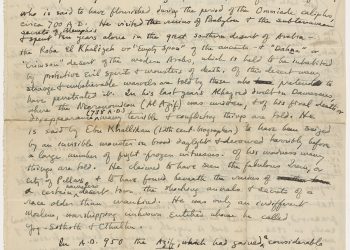 who is said to have flourished during the period of the Ommiade caliphs,
circa 700 A.D. He visited the ruins of Babylon & the subterranean
secrets of Memphis
& spent ten years alone in the great southern desert of Arabia —
the Roba El Khaliyeh or "Empty Space" of the ancients — & "Dahna" or
"Crimson" desert of the modern Arabs, which is held to be inhabited
by protective evil spirits & monsters of death. Of this desert many
strange & unbelievable marvels are told by those who pretend to
have penetrated it. In his last years Alhazred dwelt in Damascus,
where the Necronomicon (Al Azif) was written, & of his final death or
disappearance (738 A.D.) many terrible & conflicting things are told. He
is said by Ebn Khallikan (12th cent. biographer) to have been seized
by an invisible monster in broad daylight & devoured horribly before
a large number of fright-frozen witnesses. Of his madness many
things are told. He claimed to have seen the fabulous Irem, or
City of Pillars, & to have found beneath the ruins of
a certain nameless desert town the shocking annals & secrets of a
race older than mankind. He was only an indifferent
Moslem, worshipping unknown entities whom he called
Yog-Sothoth & Cthulhu.
In A.D. 950 the Azif, which had gained considerable